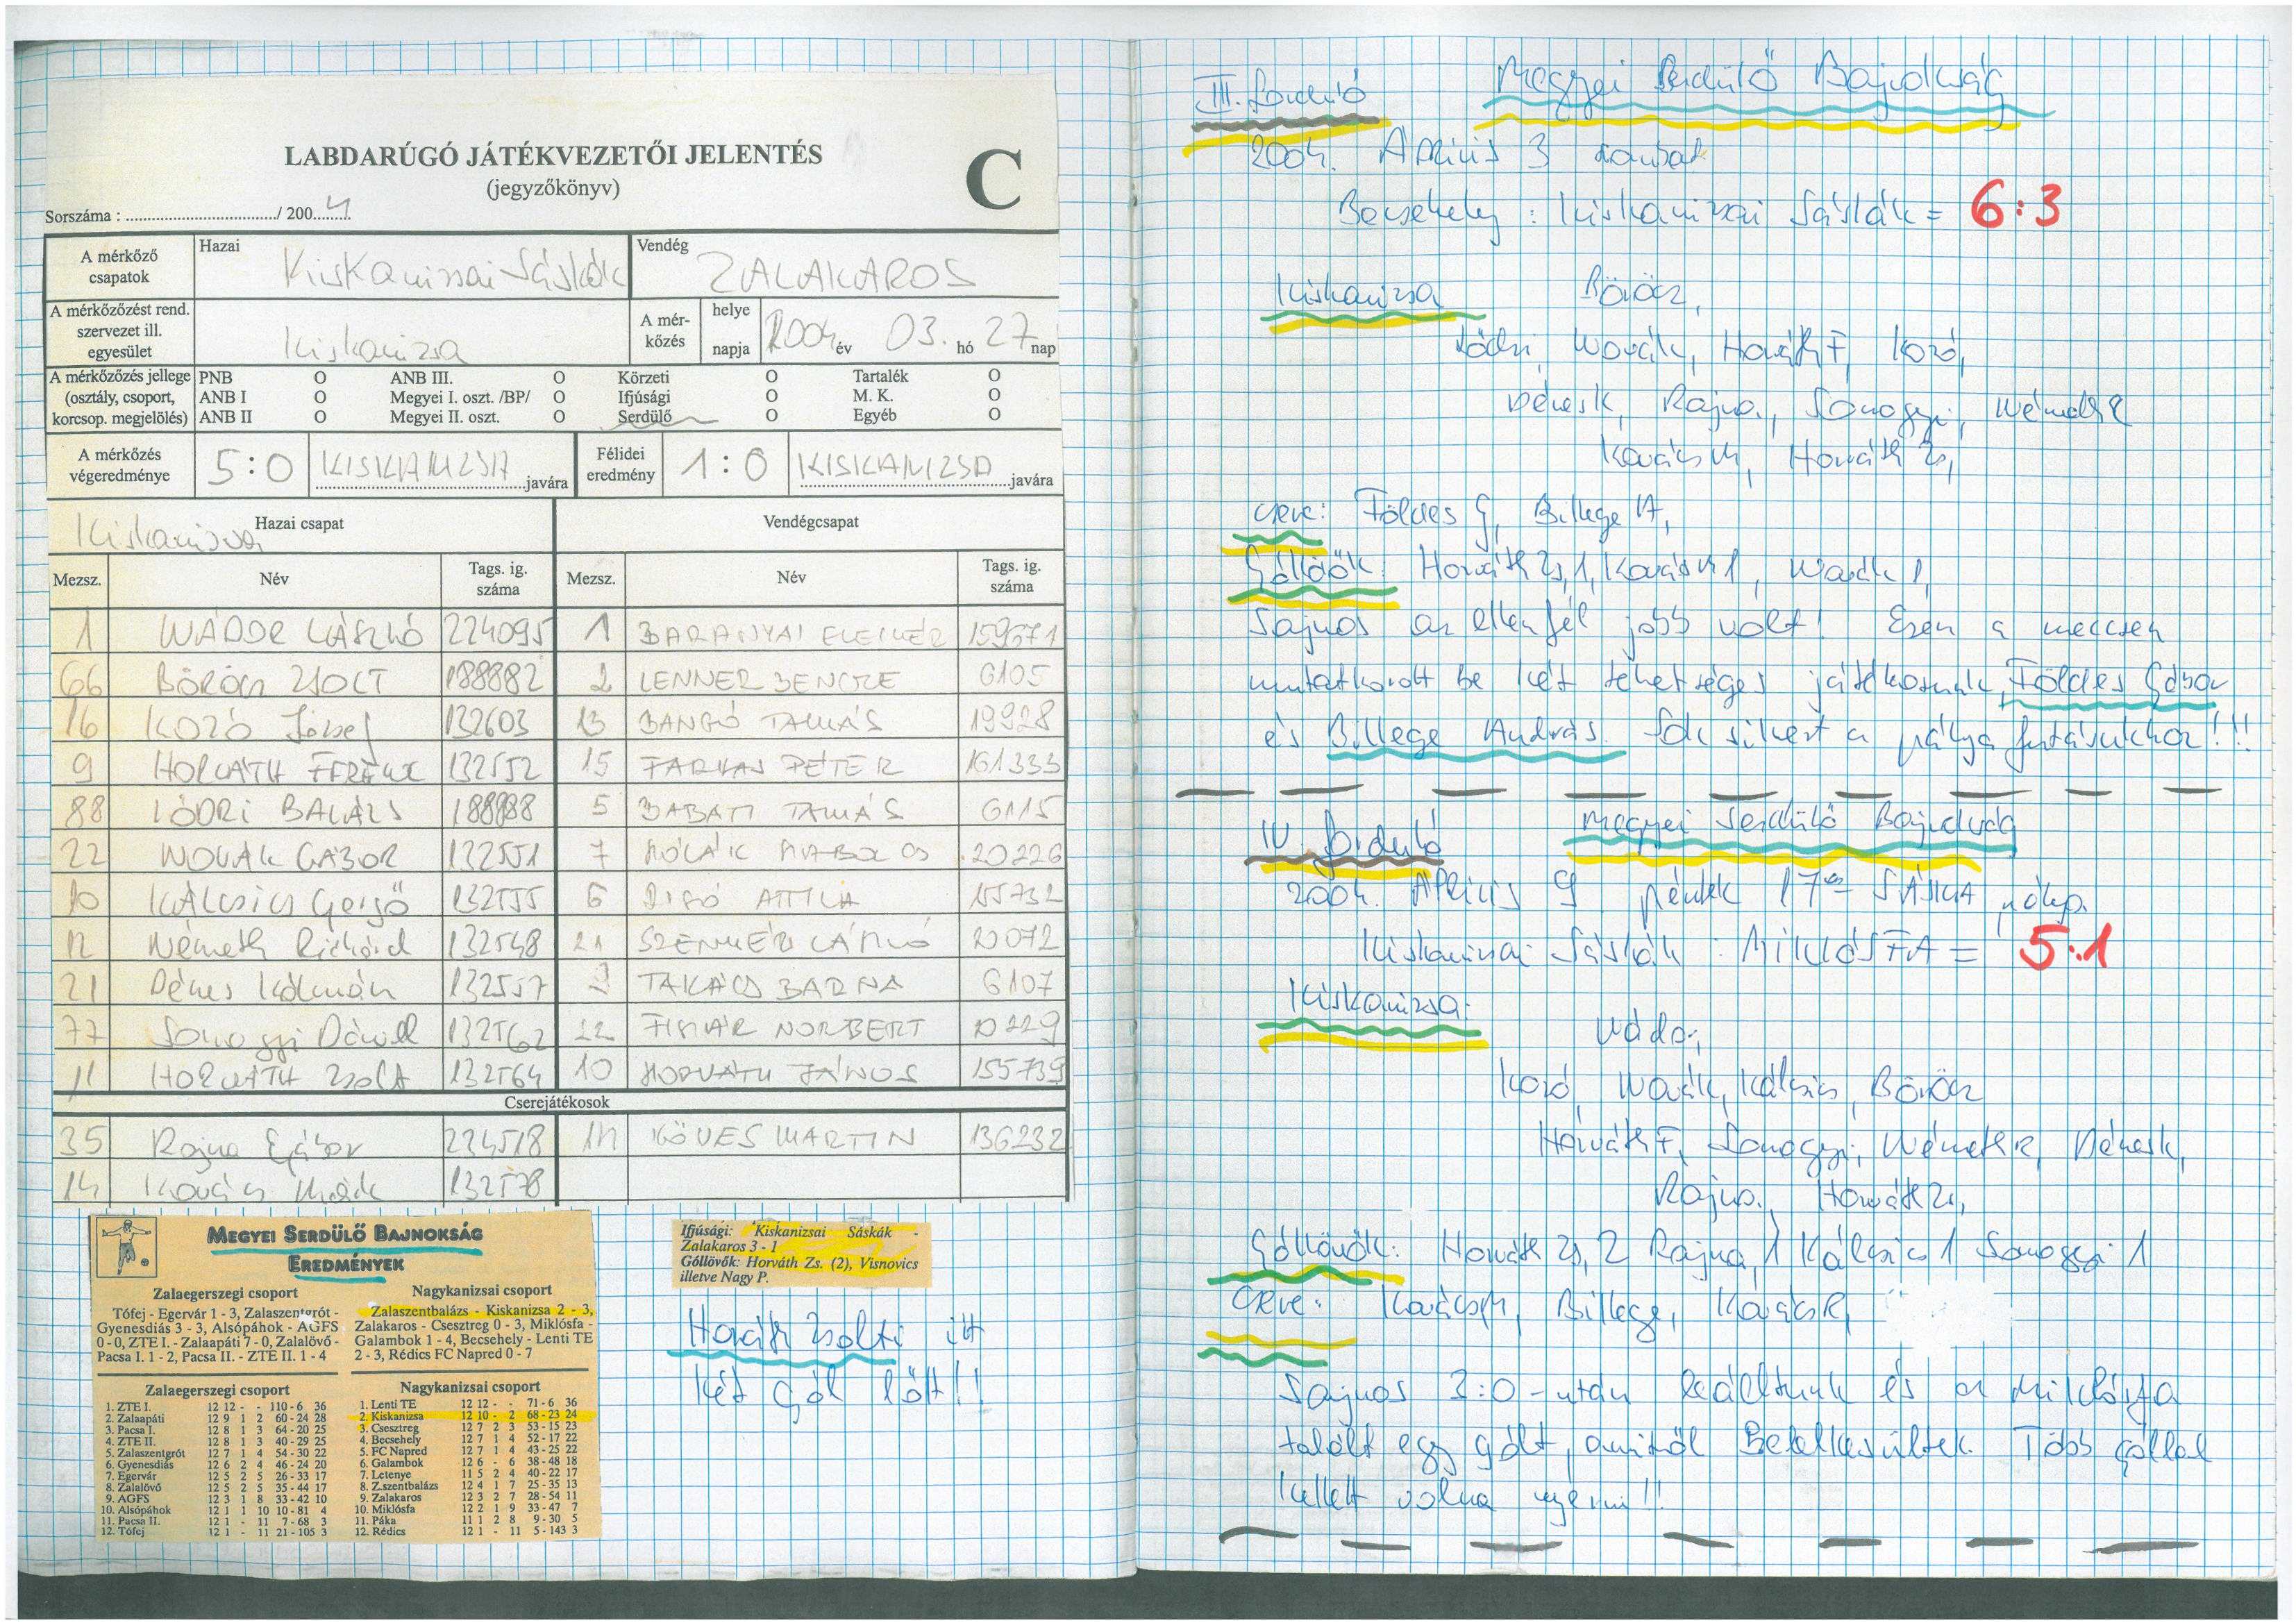 LABDARÚGÓ JÁTÉKVEZETŐI JELENTÉS
(jegyzőkönyv)
C
Sorszáma : ................................/ 2004
A mérkőző csapatok
Hazai
Kiskanizsai Sáskák
Vendég
ZALAKAROS
A mérkőzőzést rend. szervezet ill. egyesület
Kiskanizsa
A mérkőzés
helye
napja
2004 év 03. hó 27 nap
A mérkőzőzés jellege (osztály, csoport, korcsop. megjelölés)
PNB O ANB III. O Körzeti O Tartalék O
ANB I O Megyei I. oszt. /BP/ O Ifjúsági O M. K. O
ANB II O Megyei II. oszt. O Serdülő O Egyéb O
A mérkőzés végeredménye
5:0 KISKANIZSA javára
Félidei eredmény
1:0 KISKANIZSA javára
Kiskanizsa
Hazai csapat Vendégcsapat
Mezsz. Név Tags. ig. száma Mezsz. Név Tags. ig. száma
1 WÁDOR LÁSZLÓ 224095 1 BARANYAI ELEMÉR 159671
66 BÖRÖCZ ZSOLT 188882 2 LENNER BENCZE 6105
16 KOZÓ József 132603 13 BANGÓ TAMÁS 19928
9 HORVÁTH FERENC 132552 15 FARKAS PÉTER 161333
88 LŐDRI BALÁZS 188888 5 BABATI TAMÁS 6115
22 NOVÁK GÁBOR 132551 7 20226
10 KÁLCSICS Gergő 132555 6 ATTILA 155732
12 Németh Richárd 132548 21 LÁSZLÓ 20072
21 Dénes Kálmán 132557 3 TAKÁCS BARNA 6107
77 Somogyi Dávid 132562 22 NORBERT 20229
11 HORVÁTH Zsolt 132564 10 HORVÁTH JÁNOS 155739
Cserejátékosok
35 Rajna Gábor 234518 14 KÖVES MARTIN 136232
14 Kovács Márk 132578
MEGYEI SERDÜLŐ BAJNOKSÁG
EREDMÉNYEK
Zalaegerszegi csoport
Tófej - Egervár 1 - 3, Zalaszentgrót -
Gyenesdiás 3 - 3, Alsópáhok - AGFS
0 - 0, ZTE I. - Zalaapáti 7 - 0, Zalalövő -
Pacsa I. 1 - 2, Pacsa II. - ZTE II. 1 - 4
Nagykanizsai csoport
Zalaszentbalázs - Kiskanizsa 2 - 3,
Zalakaros - Csesztreg 0 - 3, Miklósfa -
Galambok 1 - 4, Becsehely - Lenti TE
2 - 3, Rédics FC Napred 0 - 7
Zalaegerszegi csoport
1. ZTE I. 12 12 - - 110 - 6 36
2. Zalaapáti 12 9 1 2 60 - 24 28
3. Pacsa I. 12 8 1 3 64 - 20 25
4. ZTE II. 12 8 1 3 40 - 29 25
5. Zalaszentgrót 12 7 1 4 54 - 30 22
6. Gyenesdiás 12 6 2 4 46 - 24 20
7. Egervár 12 5 2 5 26 - 33 17
8. Zalalövő 12 5 2 5 35 - 44 17
9. AGFS 12 3 1 8 33 - 42 10
10. Alsópáhok 12 1 1 10 10 - 81 4
11. Pacsa II. 12 1 - 11 7 - 68 3
12. Tófej 12 1 - 11 21 - 105 3
Nagykanizsai csoport
1. Lenti TE 12 12 - - 71 - 6 36
2. Kiskanizsa 12 10 - 2 68 - 23 24
3. Csesztreg 12 7 2 3 53 - 15 23
4. Becsehely 12 7 1 4 52 - 17 22
5. FC Napred 12 7 1 4 43 - 25 22
6. Galambok 12 6 - 6 38 - 48 18
7. Letenye 11 5 2 4 40 - 22 17
8. Z.szentbalázs 12 4 1 7 25 - 35 13
9. Zalakaros 12 3 2 7 28 - 54 11
10. Miklósfa 12 2 1 9 33 - 47 7
11. Páka 11 1 2 8 9 - 30 5
12. Rédics 12 1 - 11 5 - 143 3
Ifjúsági: Kiskanizsai Sáskák -
Zalakaros 3 - 1
Góllövők: Horváth Zs. (2), Visnovics
illetve Nagy P.
Horváth Zsolti itt
két gól lőtt!!
III. forduló Megyei Serdülő Bajnokság
2004. Április 3 szombat
Becsehely : Kiskanizsai Sáskák = 6:3
Kiskanizsa Böröcz,
Lődri, Novák, Horváth F, Kozó,
Dénes K, Rajna, Somogyi, Németh R
Kovács M, Horváth Zs,
csere: Földes G, Billege A,
Góllövők: Horváth Zs, 1, Kovács M 1, Novák 1,
Sajnos az ellenfél jobb volt! Ezen a meccsen
mutatkozott be két tehetséges játékosunk, Földes Gábor
és Billege András. Sok sikert a pálya futásukhoz!!!
IV. forduló Megyei Serdülő Bajnokság
2004. Április 9 péntek 17⁰⁰ SÁSKA pálya
Kiskanizsai Sáskák : MIKLÓSFA = 5:1
Kiskanizsa: Wádor,
Kozó, Novák, Kálcsics, Böröcz
Horváth F, Somogyi, Németh R, Dénes K,
Rajna, Horváth Zs,
Góllövők: Horváth Zs, 2 Rajna, 1 Kálcsics 1 Somogyi 1
Csere: Kovács M, Billege, Kovács R,
Sajnos 3:0-után leálltunk és a Miklósfa
talált egy gólt, amitől Belelkesültek. Több góllal
kellett volna nyerni!!